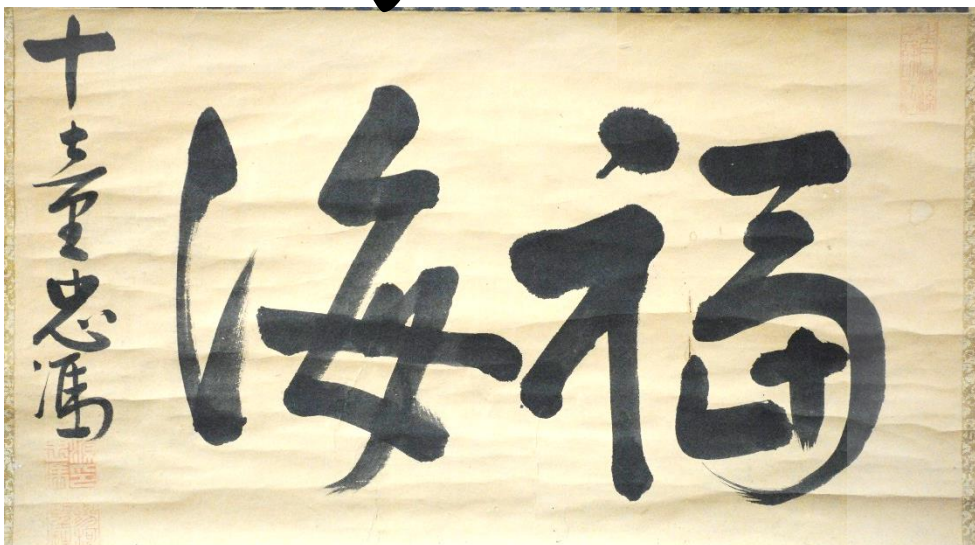 福海
十七童忠馮